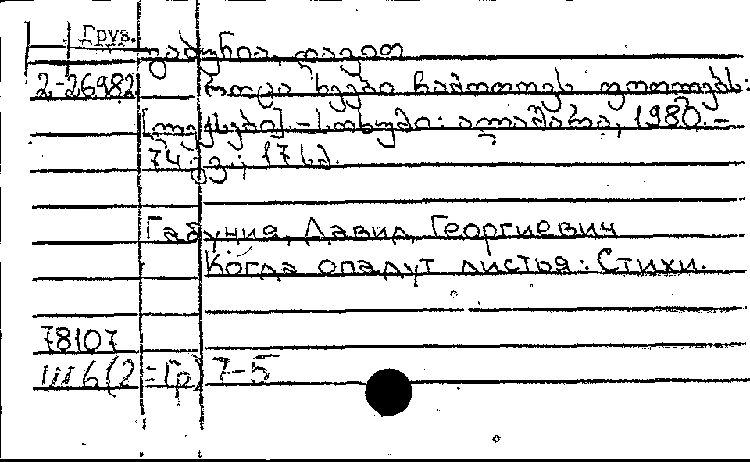 Груз.
გაბუნია, დავით
2-26982 როცა ხეები ჩამოთოვს ფოთლებს:
[ლექსები] - სოხუმი: ალაშარა, 1980. -
74 გვ.; 17 სმ.
Габуния, Давид Георгиевич
Когда опадут листья: Стихи.
78107
Ш6(2=Гр)7-5